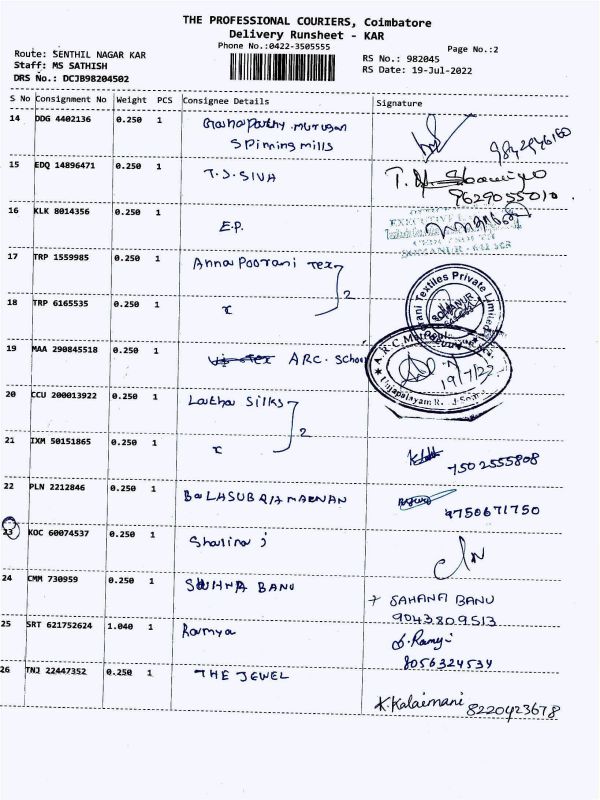 THE PROFESSIONAL COURIERS, Coimbatore
Delivery Runsheet - KAR
Phone No.:0422-3505555
Page No.:2
Route: SENTHIL NAGAR KAR
Staff: MS SATHISH
DRS No.: DCJB98204502
RS No.: 982045
RS Date: 19-Jul-2022
S No Consignment No Weight PCS Consignee Details Signature
14 DDG 4402136 0.250 1 Ganapathy murugan
Spinning mills
15 EDQ 14896471 0.250 1 T.S. SIVA
9629055010
16 KLK 8014356 0.250 1 E.P.
17 TRP 1559985 0.250 1 Annapoorani Tex
2
18 TRP 6165535 0.250 1 x
SOMANUR
19 MAA 290845518 0.250 1 ARC. School
19/7/22
20 CCU 200013922 0.250 1 Latha Silks
2
21 IXM 50151865 0.250 1 x
7502555808
22 PLN 2212846 0.250 1 BALASUBRAMANIAN
9750671750
23 KOC 60074537 0.250 1 Shalina j
24 CMM 730959 0.250 1 SAHNA BANU
SAHANA BANU
9043809513
25 SRT 621752624 1.040 1 Ramya
8056324534
26 TNJ 22447352 0.250 1 THE JEWEL
K.Kalaimani 8220423678